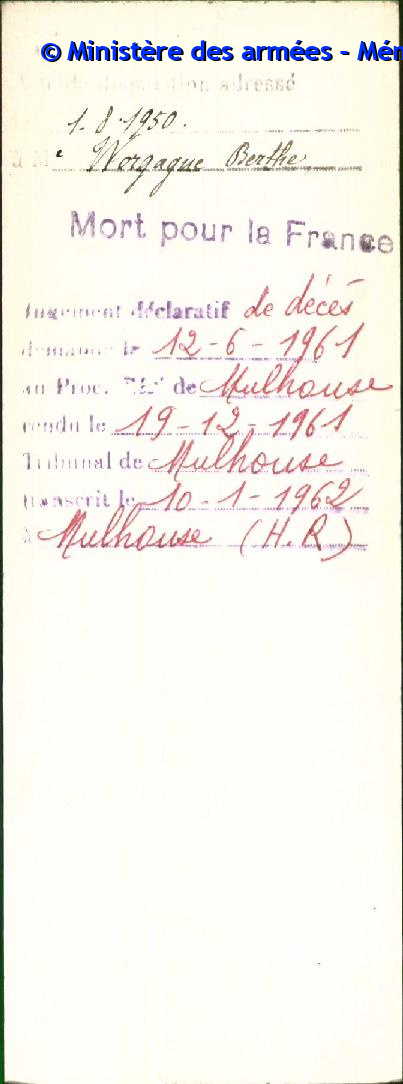 © Ministère des armées - Mém
Acte de disparition adressé
le 1-8-1950.
à Me Worgague Berthe
Mort pour la France
Jugement déclaratif de décés
demandé le 12-6-1961
au Proc. de Mulhouse
rendu le 19-12-1961
Tribunal de Mulhouse
transcrit le 10-1-1962
à Mulhouse (H.R)